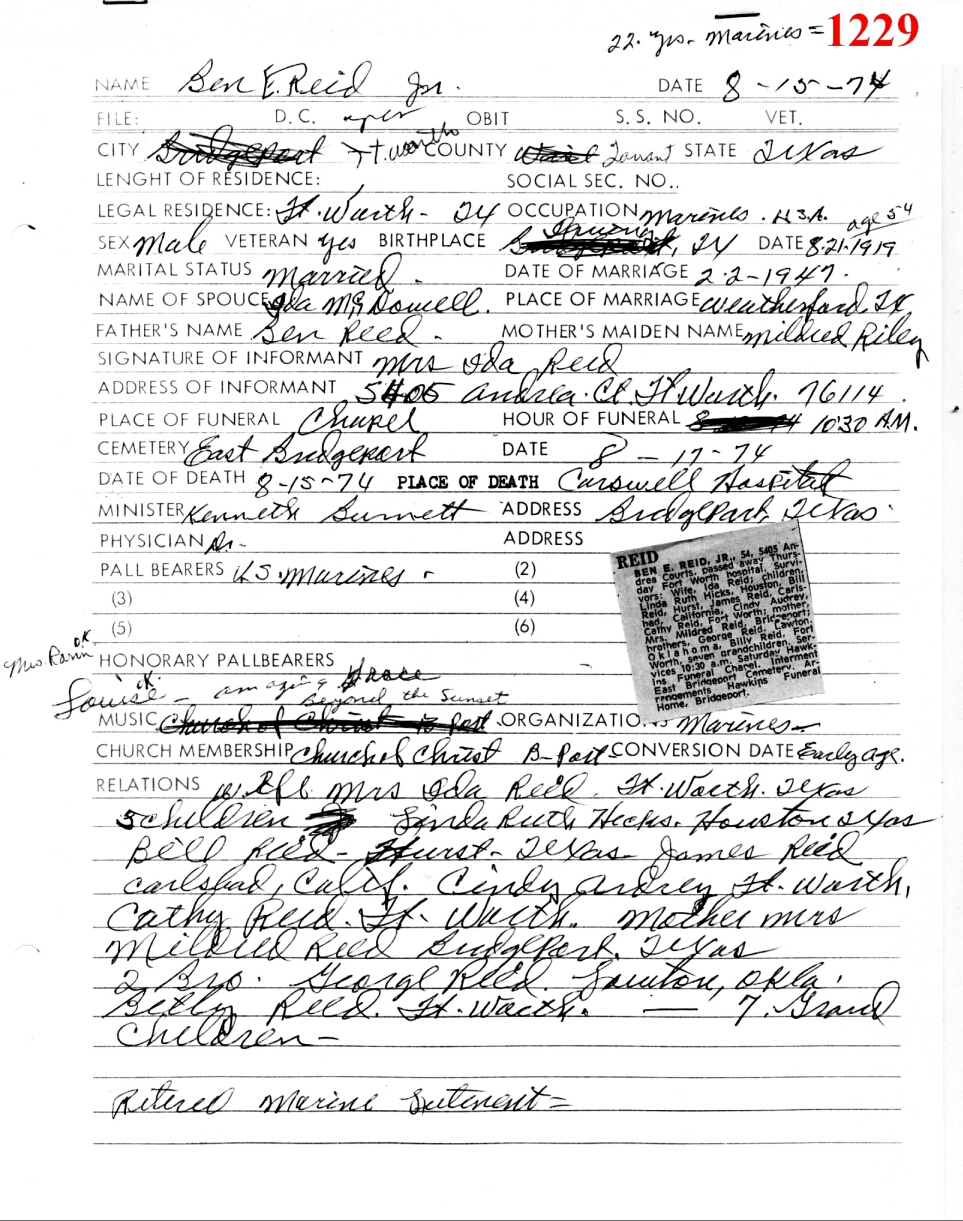 22. yrs. Marines = 1229
NAME Ben E. Reid Jr. DATE 8-15-74
FILE: D.C. OBIT S.S. NO. VET.
CITY Bridgeport Ft. Worth COUNTY Wise Tarrant STATE Texas
LENGHT OF RESIDENCE: SOCIAL SEC. NO..
LEGAL RESIDENCE: Ft. Worth - TX OCCUPATION Marines. U.S.A. age 54
SEX Male VETERAN yes BIRTHPLACE Bridgeport, TX DATE 8.21.1919
MARITAL STATUS Married. DATE OF MARRIAGE 2-2-1947.
NAME OF SPOUCE Ida McDowell. PLACE OF MARRIAGE Weatherford, TX
FATHER'S NAME Ben Reed. MOTHER'S MAIDEN NAME Mildred Riley
SIGNATURE OF INFORMANT Mrs Ida Reid
ADDRESS OF INFORMANT 5405 Andrea. Ct. Ft Worth. 76114
PLACE OF FUNERAL Chapel HOUR OF FUNERAL 10:30 A.M.
CEMETERY East Bridgeport DATE 8-17-74
DATE OF DEATH 8-15-74 PLACE OF DEATH Carswell Hospital
MINISTER Kenneth Burnett ADDRESS Bridgeport, Texas.
PHYSICIAN Dr. ADDRESS
PALL BEARERS U.S. Marines - (2)
(3) (4)
(5) (6)
REID
BEN E. REID, JR., 54, 5405 An-
drea Courts, passed away Thurs-
day Fort Worth hospital. Survi-
vors: Wife, Ida Reid; children,
Linda Ruth Hicks, Houston, Bill
Reid, Hurst, James Reid, Carls-
bad, California, Cindy Audrey,
Cathy Reid, Fort Worth; mother,
Mrs. Mildred Reid, Bridgeport;
brothers, George Reid, Lawton,
Oklahoma, Billy Reid, Fort
Worth, seven grandchildren. Ser-
vices 10:30 a.m. Saturday Hawk-
ins Funeral Chapel. Interment
East Bridgeport Cemetery. Ar-
rangements Hawkins Funeral
Home, Bridgeport.
ok
Mrs.
HONORARY PALLBEARERS
Louise ok. - amazing Grace
Beyond the Sunset
MUSIC Church of Christ B-Port ORGANIZATIONS Marines-
CHURCH MEMBERSHIP Church of Christ B-Port CONVERSION DATE Early age.
RELATIONS wife Mrs Ida Reid. Ft. Worth. Texas
5 children Linda Ruth Hicks. Houston Texas
Bill Reid - Hurst - Texas James Reid
Carlsbad, Calif. Cindy Ardrey Ft. Worth,
Cathy Reid. Ft. Worth. Mother Mrs
Mildred Reed Bridgeport. Texas
2 Bro. George Reed. Lawton, Okla.
Billy Reed. Ft. Worth. — 7. Grand
Children -
Retired Marine